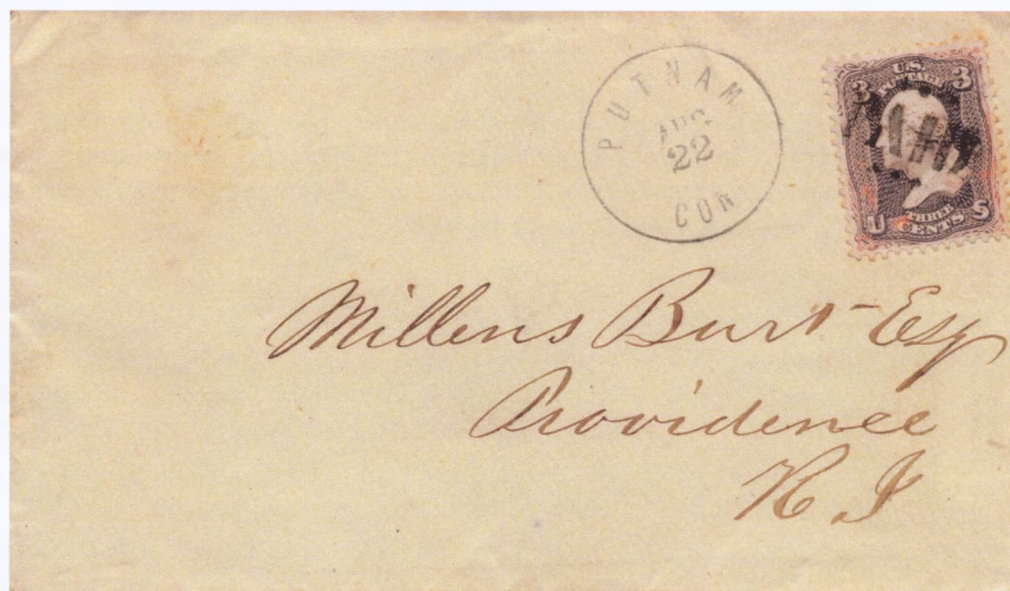 PUTNAM
AUG
22
CON
U.S.
POSTAGE
3 3
THREE
U CENTS S
Millens Burt Esq
Providence
R I